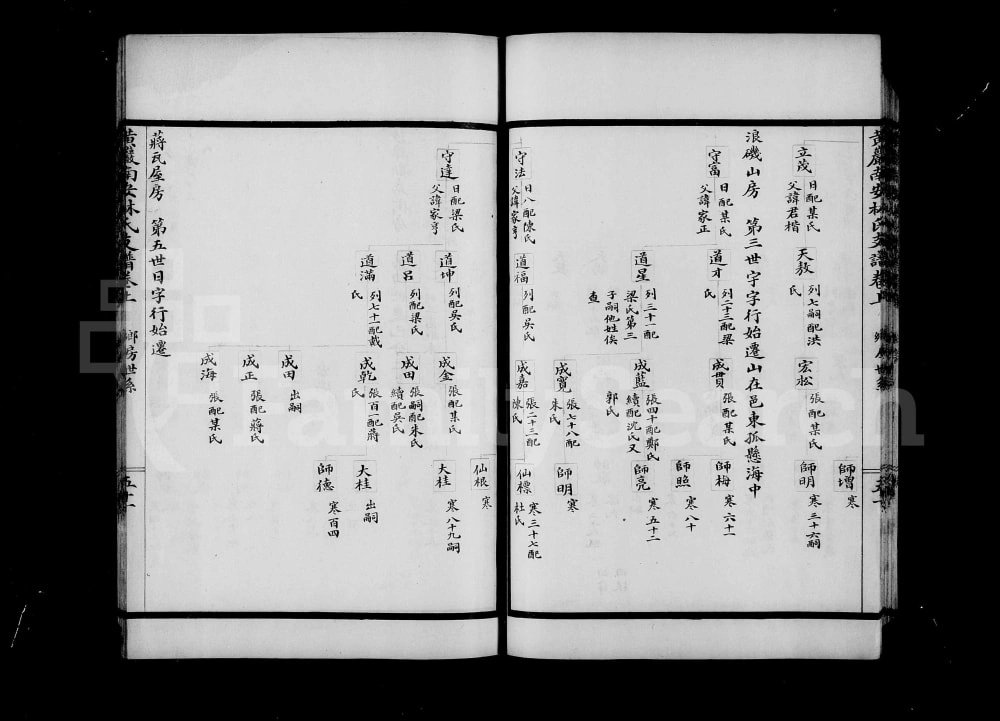 立茂 日配某氏 父諱君楷
天敖 列七嗣配洪氏
宏松 張配某氏
師增 寒
師明 寒三十六嗣
浪磯山房 第三世宇字行始遷山在邑東孤懸海中
守富 日配某氏 父諱家正
道才 列二十三配梁氏
成貫 張配某氏
師梅 寒六十一
師照 寒八十
道星 列三十一配梁氏第三子嗣他姓俟查
成藍 張四十配鄭氏續配沈氏又郭氏
師亮 寒五十二
成寬 張七十八配朱氏
師明 寒
守法 日八配陳氏 父諱家亨
道福 列配吳氏
成嘉 張二十三配陳氏
仙標 寒三十七配杜氏
仙根 寒
守達 日配梁氏 父諱家亨
道坤 列配吳氏
成金 張配某氏
大桂 寒八十九嗣
道呂 列配梁氏
成田 張嗣配朱氏續配吳氏
道滿 列七十配戴氏
成乾 張百一配蔣氏
大桂 出嗣
師德 寒百四
成田 出嗣
成正 張配蔣氏
成海 張配某氏
蔣瓦屋房 第五世日字行始遷
黃巖南安林氏支譜卷上 鄉房世系
五十一
FamilySearch